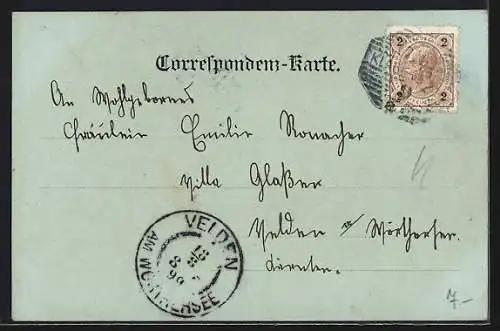 Correspondenz-Karte.
2 2
2 2
An Wohlgebornes
Fräulein Emilie Ronacher
Villa Glaßer
Velden a/ Wörthersee
Kärnten.
VELDEN
AM WÖRTHERSEE
7.-